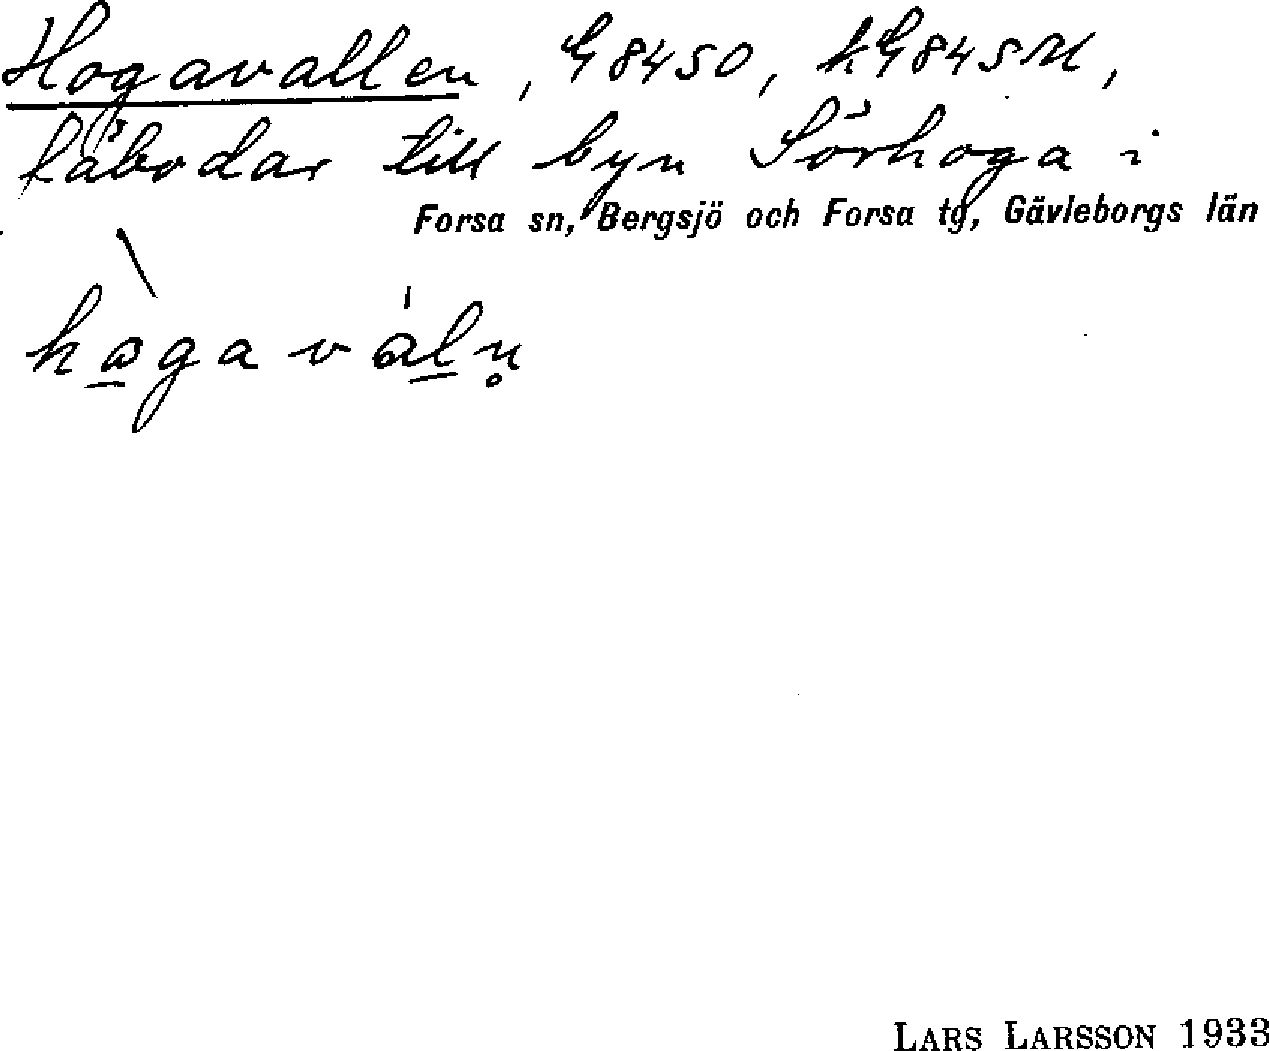 Hogavallen, G8450, hG845M,
fäbodar till byn Sörhoga i
Forsa sn, Bergsjö och Forsa tg, Gävleborgs län
LARS LARSSON 1933